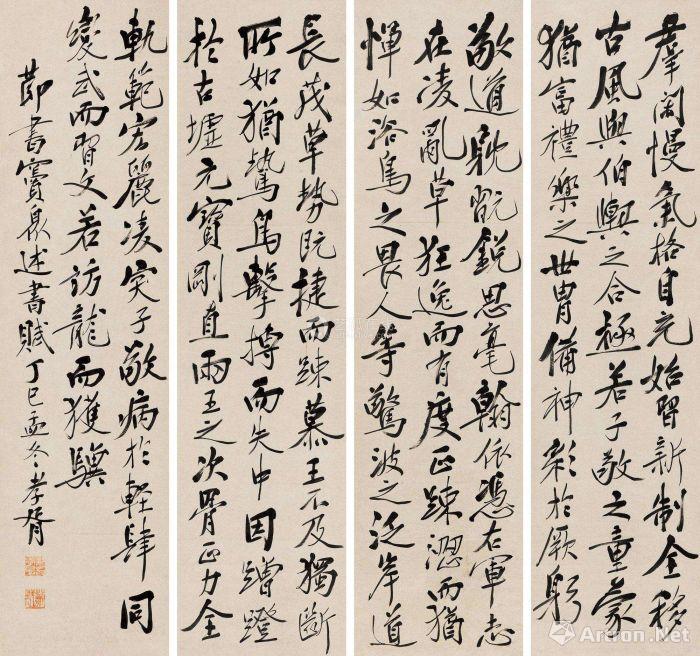 羣闊慢氣格自充始習新制全移
古風與伯輿之合極若子敬之童蒙
猶富禮樂之世胄備神彩於厥躬
敬道耽翫銳思毫翰依憑右軍志
在凌亂草狂逸而有度正踈澀而猶
憚如浴鳥之畏人等驚波之泛岸道
長茂草勢既捷而踈慕王不及獨斷
所如猶鷙鳥擊摶而失中因蹭蹬
於古墟元寶剛直兩王之次骨正力全
軌範宏麗凌突子敬病於輕肆同
變武而習文若訪龍而獲驥
節書竇臮述書賦丁巳孟冬孝胥
Artron.Net